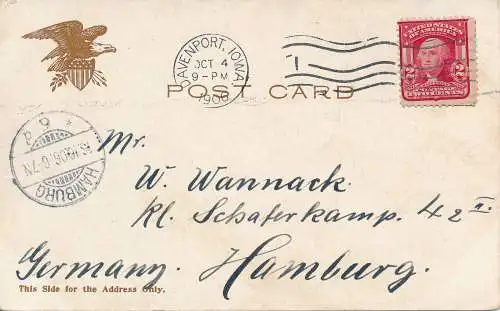 DAVENPORT, IOWA
OCT 4
9-PM
1906
UNITED STATES
OF AMERICA
2 2
TWO CENTS
POST CARD
HAMBURG
Mr.
W. Wannack
Kl. Schäferkamp. 42 II.
Germany. Hamburg.
This Side for the Address Only.